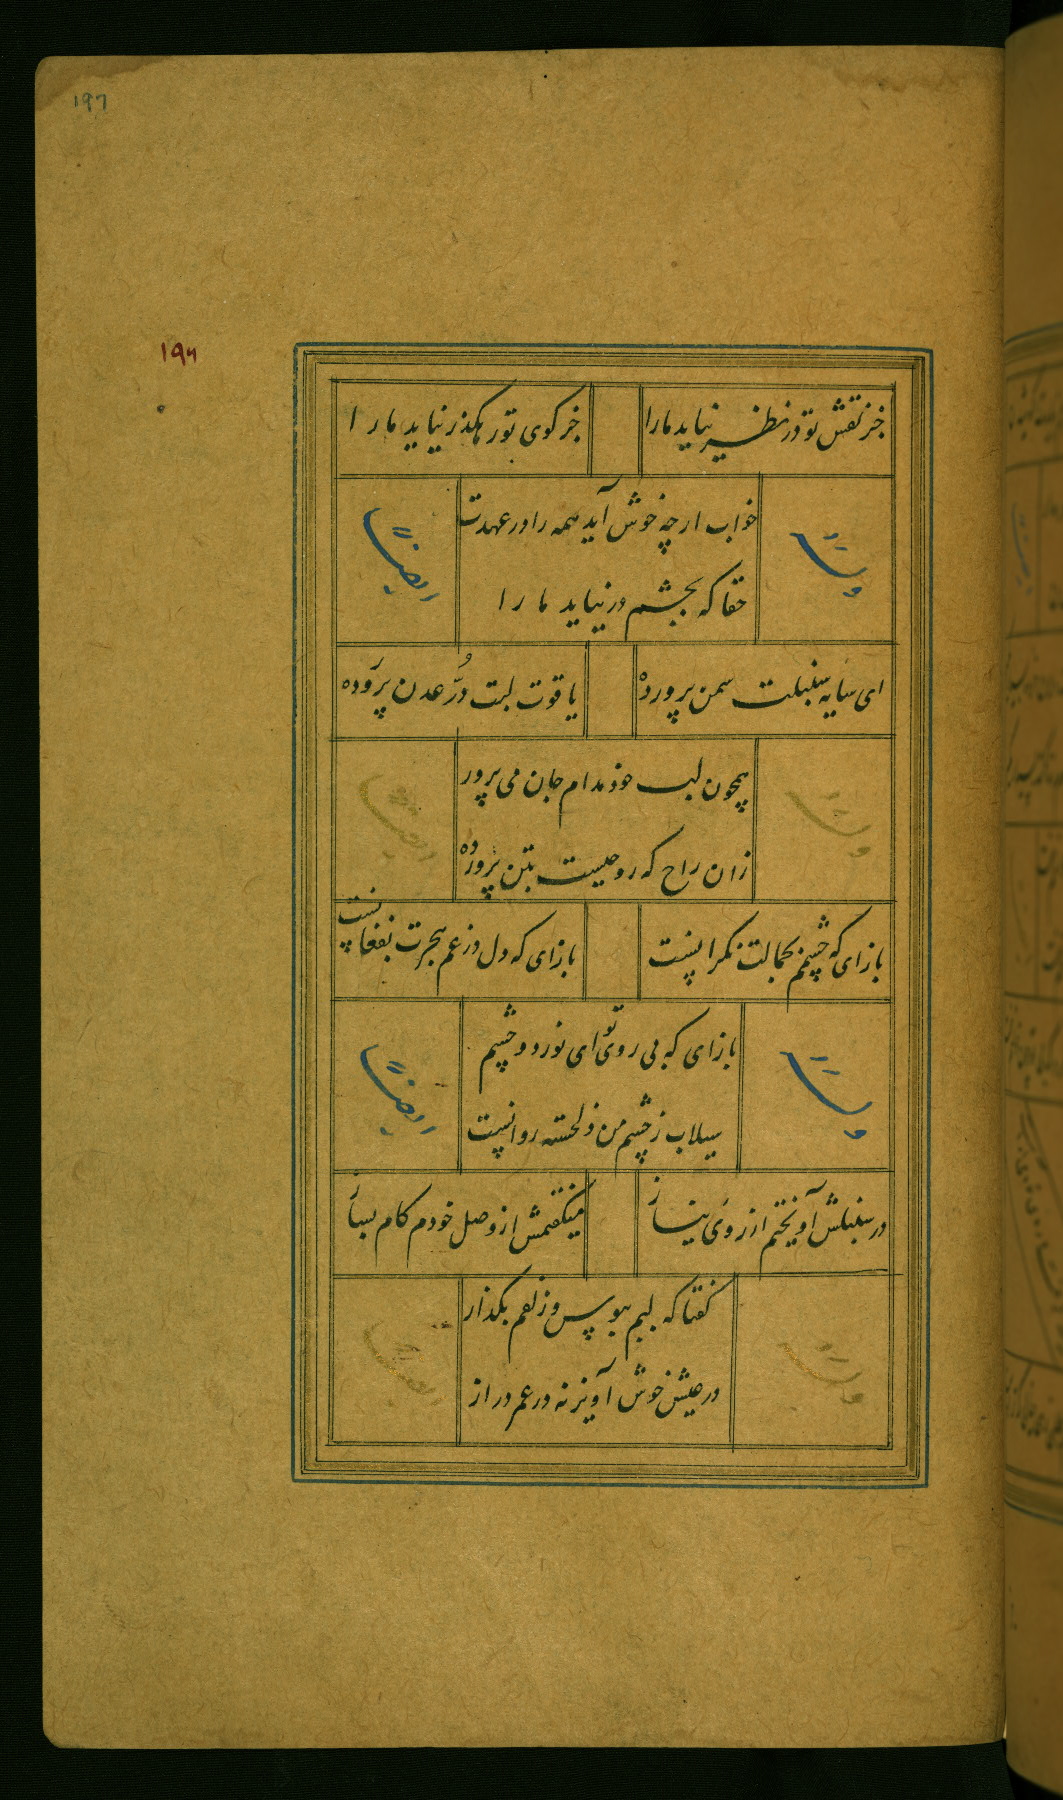 ۱۹۷
۱۹۶
جز نقش تو در نظر نیاید ما را
جز کوی تو رهکذر نیاید ما را
خواب ارچه خوش آید همه را در عهدت
حقا که بچشم در نیاید ما را
وله
ایضا
ای سایه سنبلت سمن پرورده
یاقوت لبت دُرّ عدن پرورده
همچون لب خود مدام جان می پرور
زان راح که روحیست بتن پرورده
وله
ایضا
بازای که چشمم بجمالت نکرانست
بازای که دل در غم هجرت بفغانست
بازای که بی روی تو ای نور دو چشم
سیلاب ز چشم من دلخسته روانست
وله
ایضا
در سنبلش آویختم از روی نیاز
میکفتمش از وصل خودم کام بساز
کفتا که لبم ببوس و زلفم بکذار
در عیش خوش آویز نه در عمر دراز
وله
ایضا